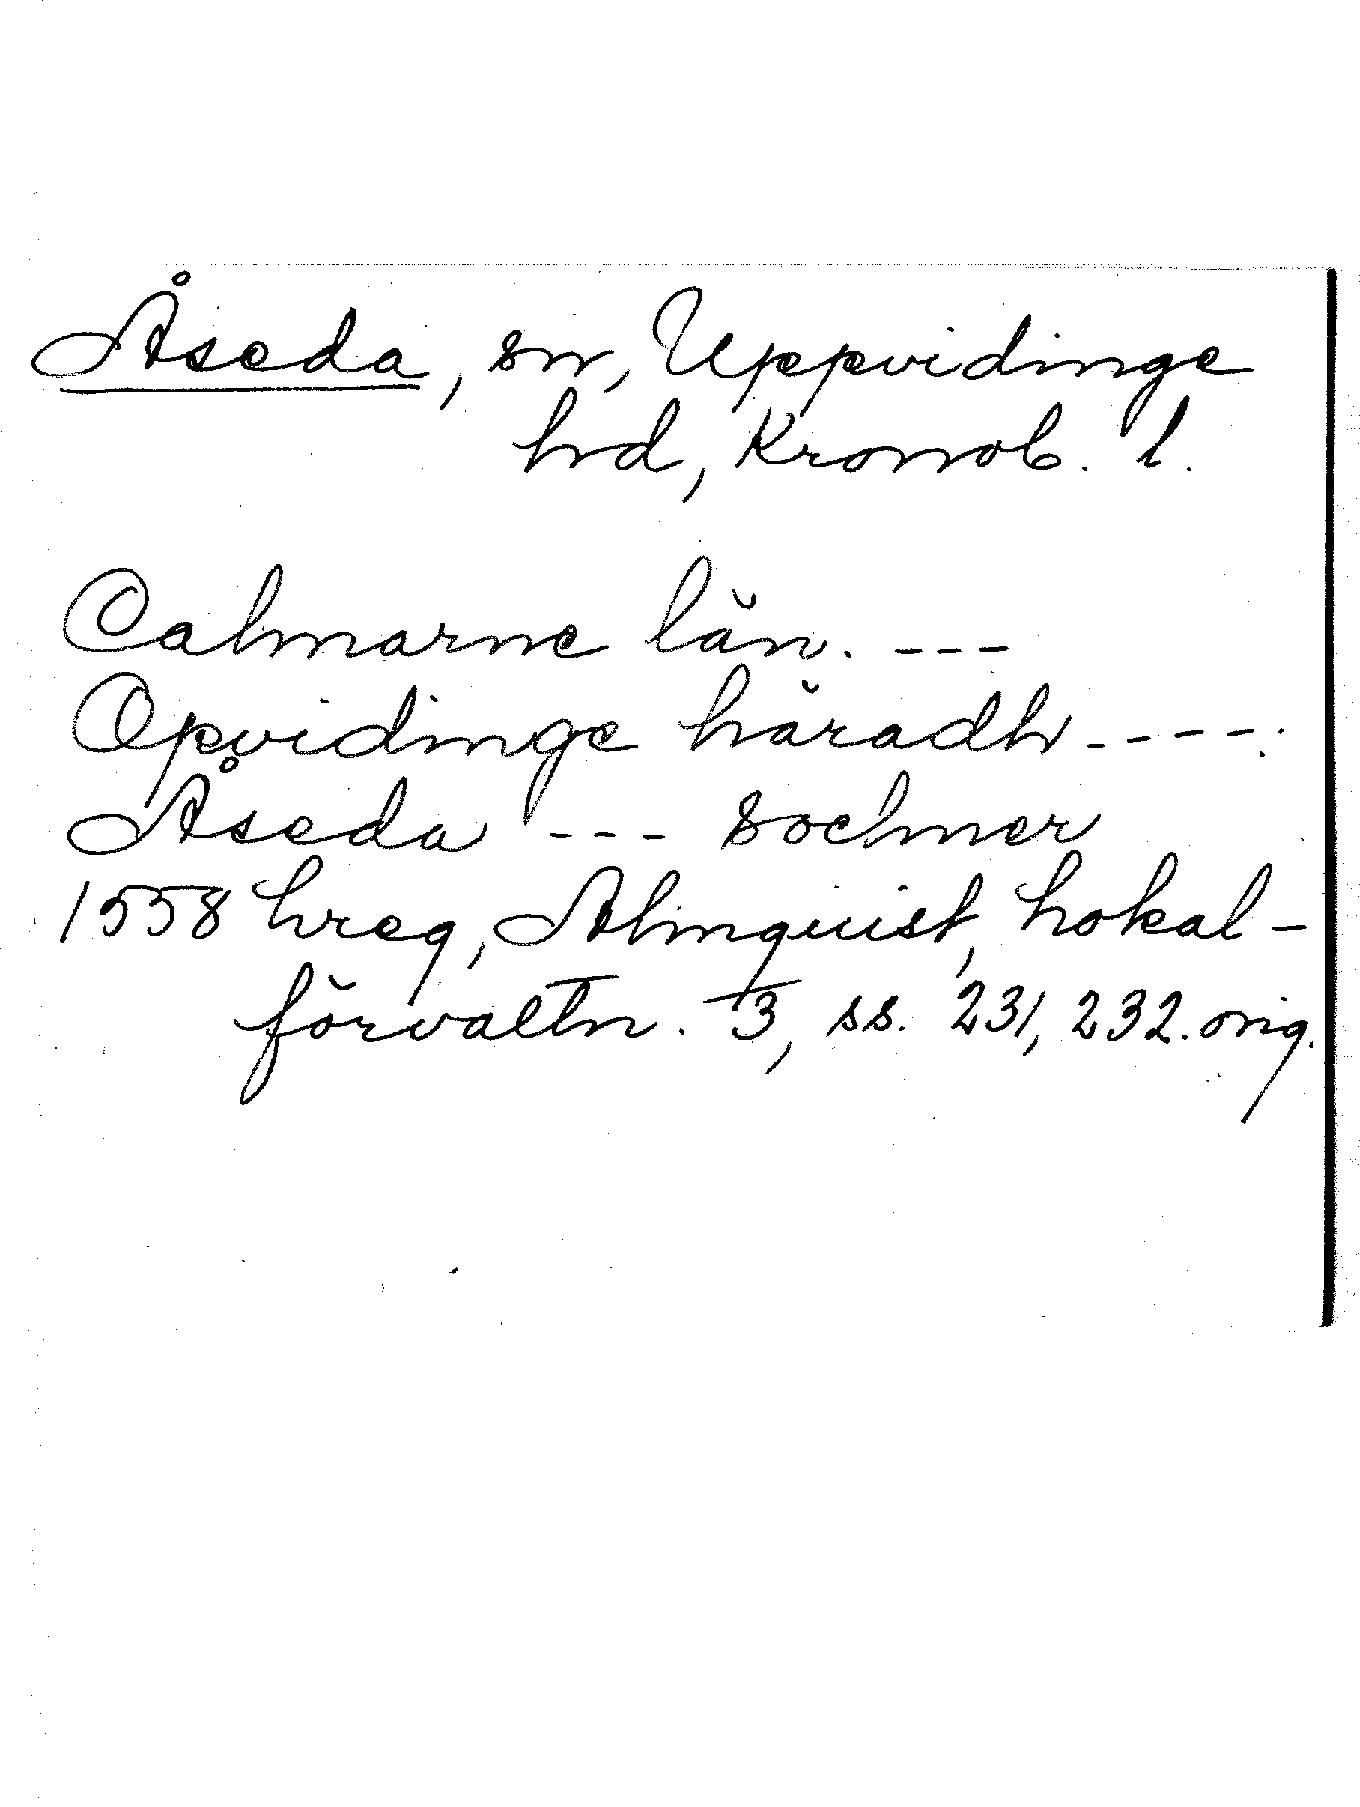 Åseda, sn, Uppvidinge
hd, Kronob. l.
Calmarne län. ---
Opvidinge häradh ----.
Åseda --- sochner
1558 hreg, Almquist, Lokal-
förvaltn. 3, ss. 231, 232. orig.